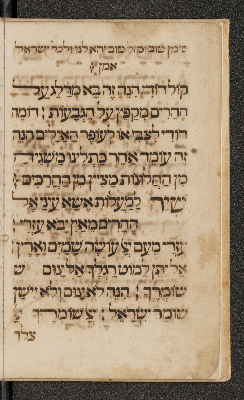 סימן טוב ומזל טוב יהא לנו ולכל ישראל
אמן
קול דודי הנה זה בא מדלג על
ההרים מקפץ על הגבעות דומה
דודי לצבי או לעופר האילים הנה
זה עומד אחר כתלינו משגיח
מן החלונות מציץ מן החרכים
שיר למעלות אשא עיני אל
ההרים מאין יבא עזרי
עזרי מעם יְיָ עושה שמים וארץ
אל יתן למוט רגלך אל ינום ש
שומרך הנה לא ינום ולא יישן
שומר ישראל יְיָ שומרך יְיָ
צלך